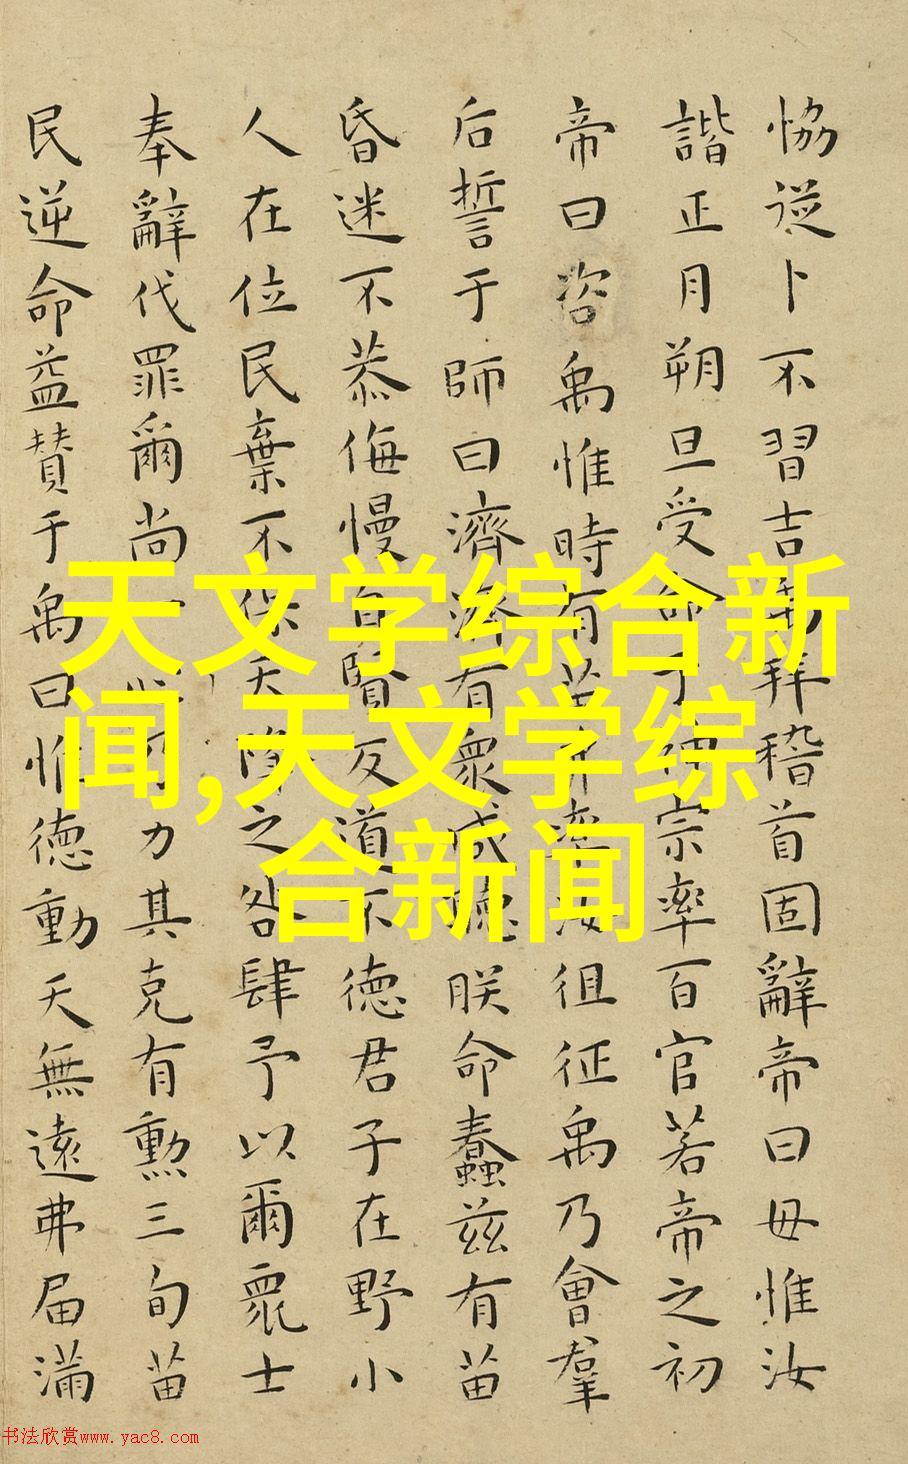 恊從卜不習吉禹拜稽首固辭帝曰毋惟汝
諧正月朔旦受命于神宗率百官若帝之初
帝曰咨禹惟時有苗弗率汝徂征禹乃會羣
后誓于師曰濟濟有眾咸聽朕命蠢茲有苗
昏迷不恭侮慢自賢反道不德君子在野小
人在位民棄不保天降之咎肆予以爾眾士
奉辭伐罪爾尚一力其克有勲三旬苗
民逆命益賛于禹曰惟德動天無遠弗届滿
天文学综合新
闻,天文学综
合新闻
书法欣赏www.yac8.com